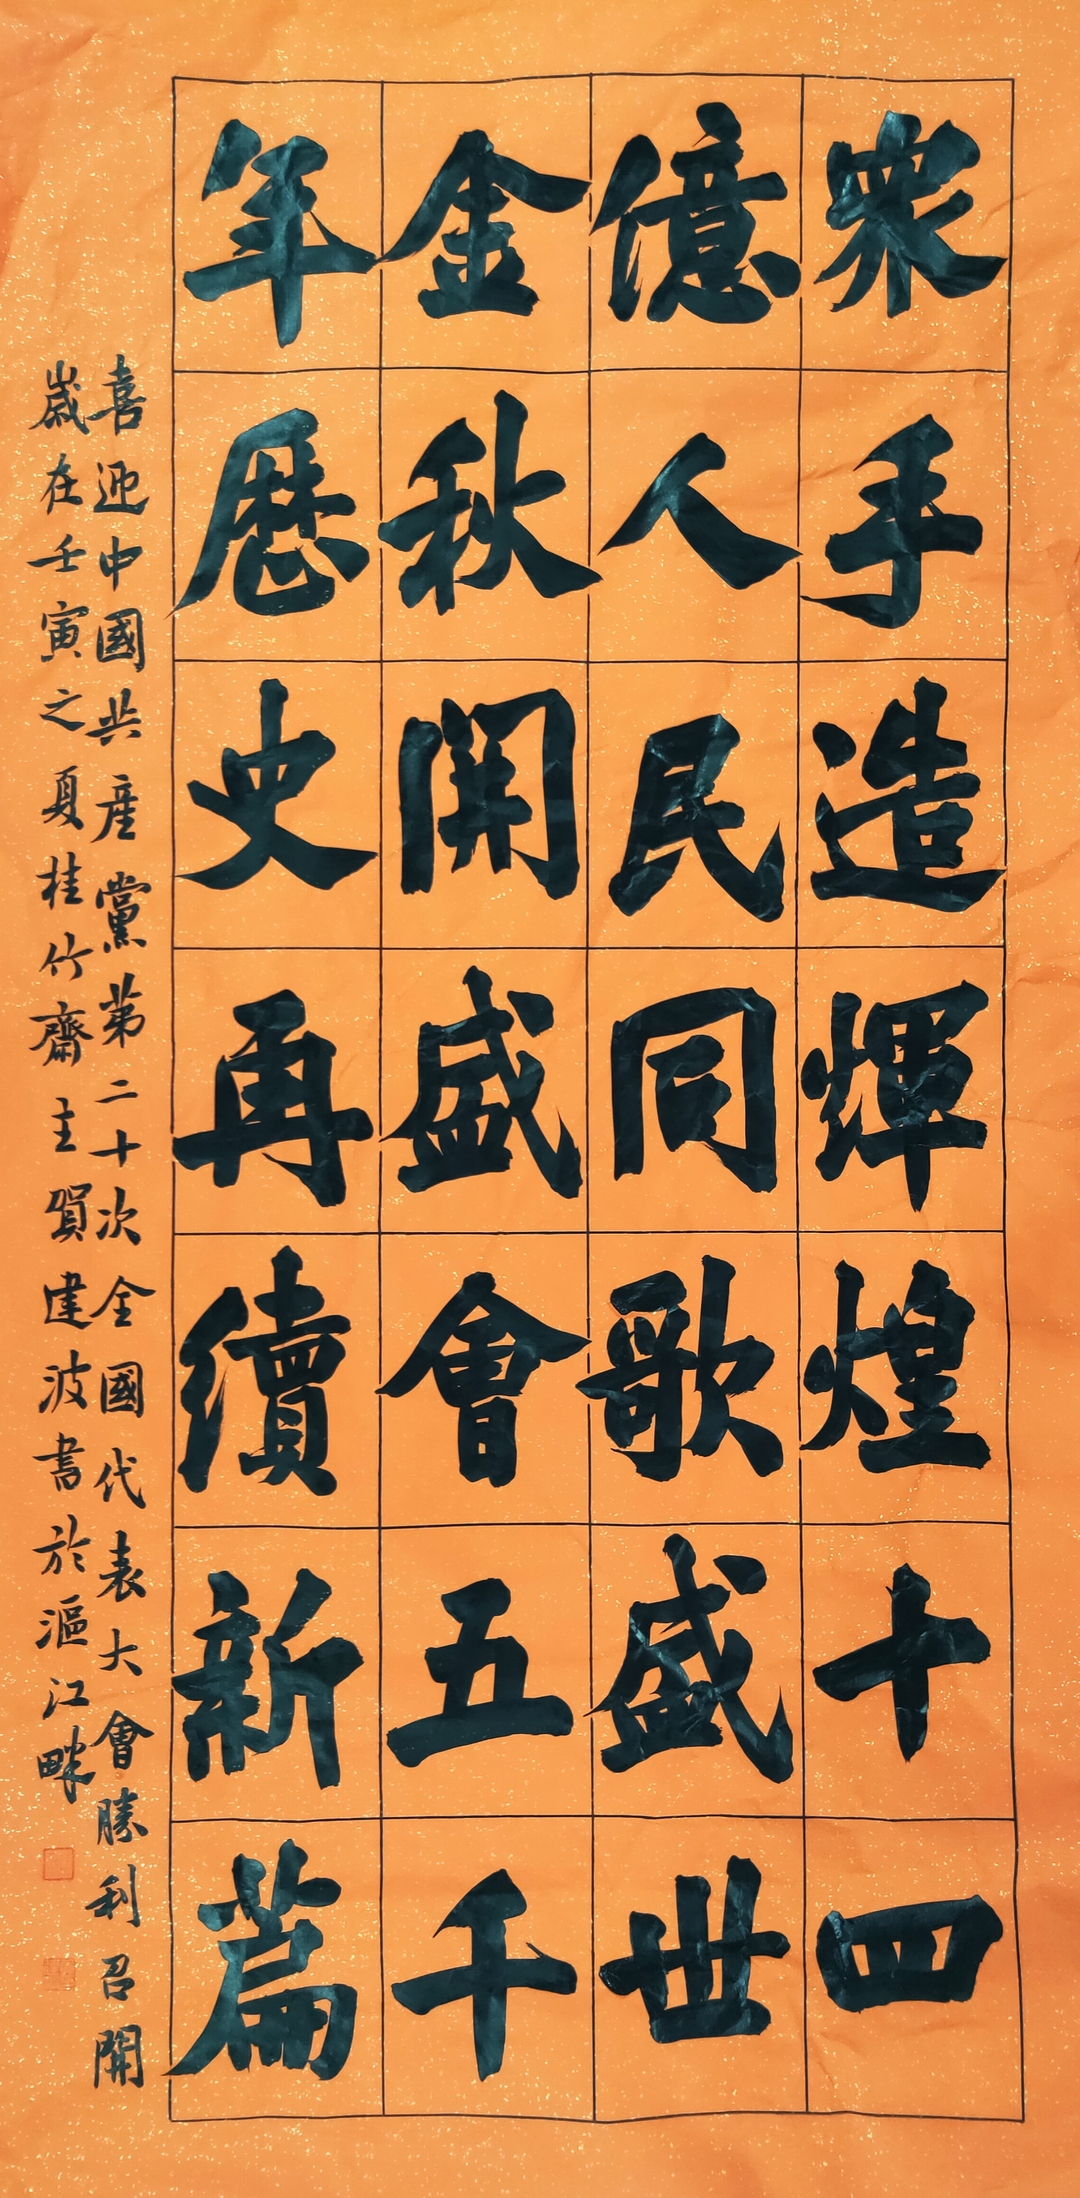 眾手造輝煌十四
億人民同歌盛世
金秋開盛會五千
年歷史再續新篇
喜迎中國共產黨第二十次全國代表大會勝利召開
歲在壬寅之夏桂竹齋主賀建波書於漚江畔